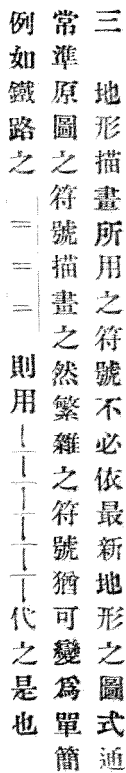 三　地形描畫所用之符號不必依最新地形之圖式通
常準原圖之符號描畫之然繁雜之符號猶可變爲單簡
例如鐵路之　則用　代之是也